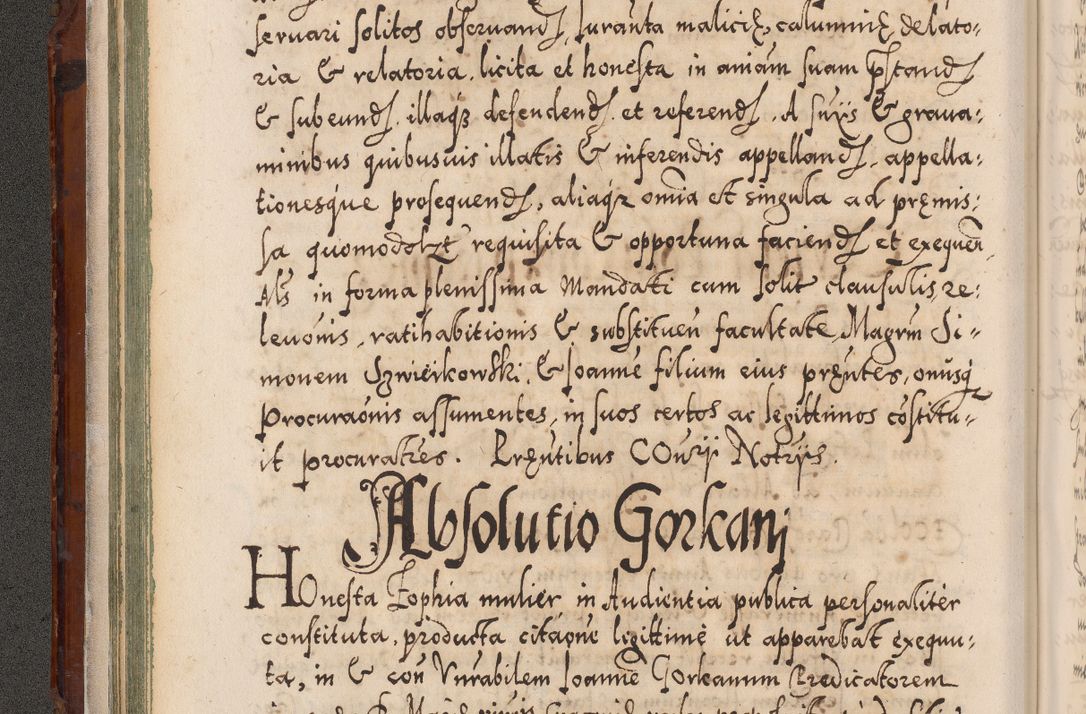 seruari solitos obseruand. Iuranta malicię, calumnię, delato-
ria & relatoria. licita et honesta in aniam suam pstand.
& subeund. illaqȝ defendend. et referend. A suys & graua-
minibus quibusuis illatis & inferendis appelland. appella-
tionesque prosequend., aliaqȝ omia et singula ad pręmis-
sa quomodolȝt requisita & opportuna faciend. et exequen
Als in forma plenissima Mandati cum solit clausulis, re-
leuonis, ratihabitionis & substituen facultate, Magrm Si-
monem Szwierkowski, & Joanne filium eius pręntes, onusqȝ
Procuraonis assumentes, in suos certos ac legittimos costitu-
it procuratres. Pręntibus COury Notrys.
Absolutio Gorkanj
HOnesta Zophia mulier in Audientia publica personaliter
constituta, producta citaone legittime ut apparebat exequu-
ta, in & con Vnrabilem Ioanne Gorkanum Predicatorem